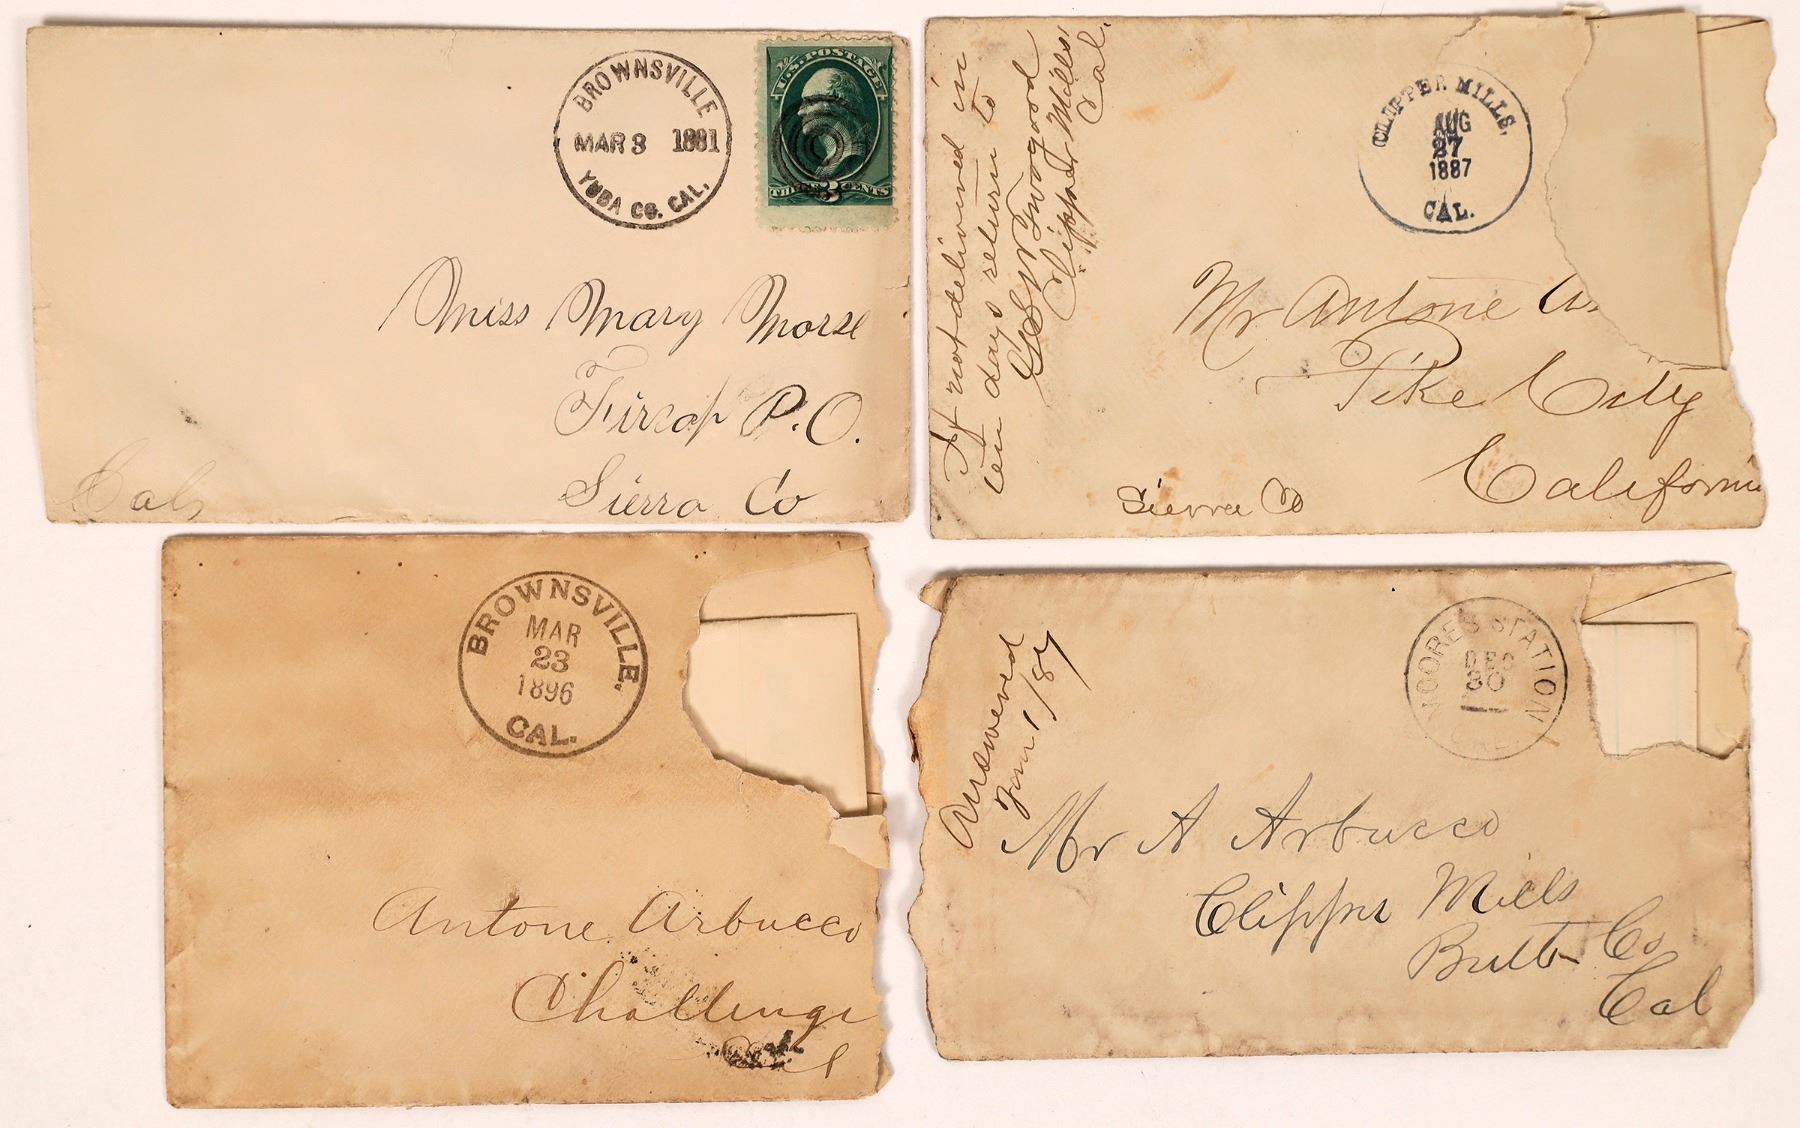 BROWNSVILLE
MAR 3 1881
YUBA CO. CAL.
U.S. POSTAGE
THREE 3 CENTS
Miss Mary Morse
P.O.
Sierra Co
Cal,
If not delivered in
ten days return to
Clipper Mills,
Cal.
CLIPPER MILLS,
AUG
27
1887
CAL.
Mr Antone
Pike City
California
Sierra Co
BROWNSVILLE,
MAR
23
1896
CAL.
Antone Arbucco
Challenge
Cal
Answered
Jan 1/87
MOORE'S STATION
DEC
30
CAL.
Mr A Arbucco
Clipper Mills
Butte Co
Cal